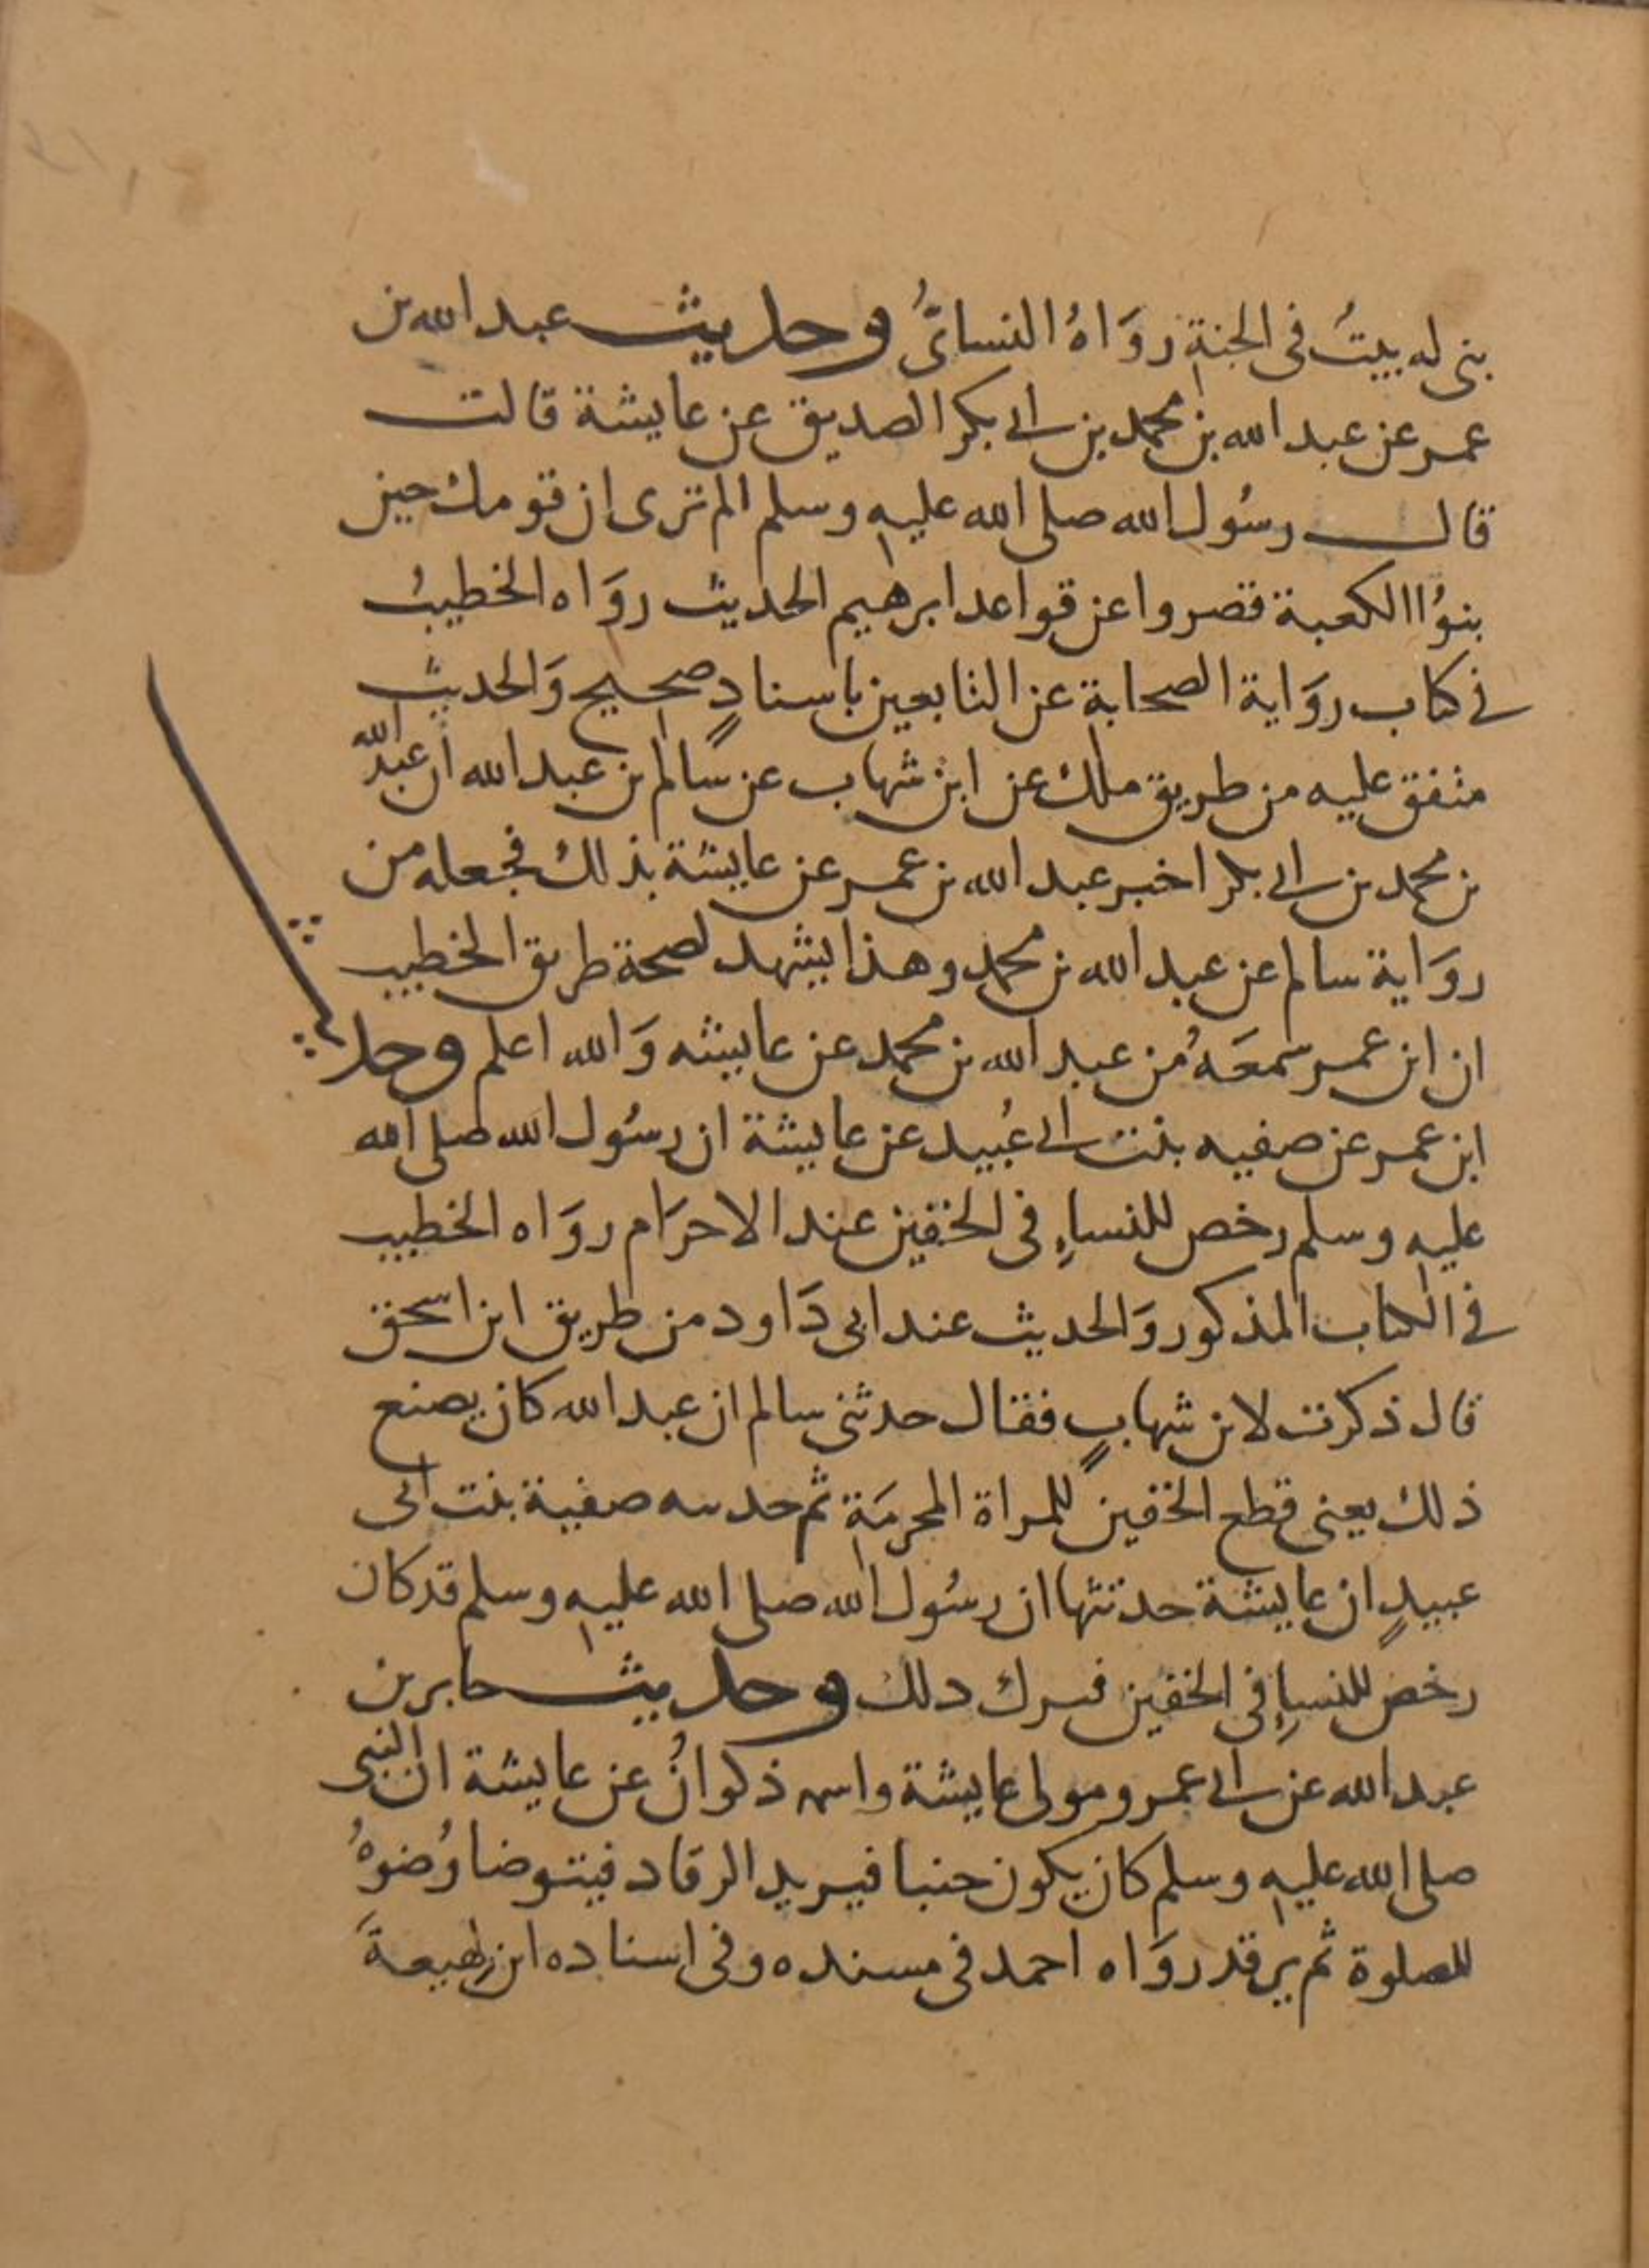 بنى له بيتُ فى الجنةِ روَاهُ النسائىُّ وحديث عبد الله بن
عمر عن عبد الله بن محمد بن ابى بكر الصديق عن عايشة قالت
قال رسُول الله صلى الله عليهِ وسلم الم ترى ان قومك حين
بنوُا الكعبة قصروا عن قواعد ابرهيم الحديث روَاه الخطيبُ
فى كتاب روَاية الصحابةِ عن التابعين باسنادٍ صحيح وَالحديث
متفق عليه من طريق ملك عن ابن شهاب عن سالم بن عبد الله ان عبد الله
بن محمد بن ابى بكر اخبر عبد الله بن عمر عن عايشة بذلك فجعله من
روَاية سالم عن عبد الله بن محمد وهذا يشهد لصحة طريق الخطيب
ان ابن عمر سمعَهُ من عبد الله بن محمد عن عايشه وَالله اعلم وحد
ابن عمر عن صفيه بنت ابى عُبيد عن عايشة ان رسُول الله صلى الله
عليهِ وسلم رخص للنساءِ فى الخفين عند الاحرَام روَاه الخطيب
فى الكتاب المذكور وَالحديث عند ابى دَاود من طريق ابن اسحق
قال ذكرت لابن شهابٍ فقال حدثنى سالم ان عبد الله كان يصنع
ذلك يعنى قطع الخفين للمراة المحرمَةِ ثم حدثته صفية بنت ابى
عبيدٍ ان عايشة حدثتها ان رسُول الله صلى الله عليهِ وسلم قد كان
رخص للنساءِ فى الخفين فترك ذلك وحديث جابر بن
عبد الله عن ابى عمرو مولى عايشة واسمه ذكوانُ عن عايشة ان النبى
صلى الله عليهِ وسلم كان يكون جنبا فيريد الرقاد فيتوضا وُضوهُ
للصلوة ثم يرقد روَاه احمد فى مسنده وفى اسناده ابن لهيعةَ